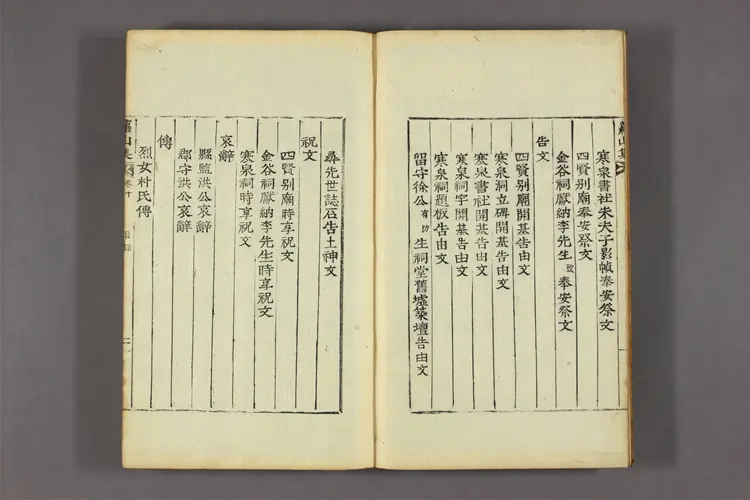 寒泉書社朱夫子影幀奉安祭文
四賢別廟奉安祭文
金谷祠獻納李先生 奉安祭文
告文
四賢別廟開基告由文
寒泉洞立碑開基告由文
寒泉書社開基告由文
寒泉祠宇開基告由文
寒泉祠題板告由文
留守徐公有防生祠堂舊墟築壇告由文
尋先世誌石告土神文
祝文
四賢別廟時享祝文
金谷祠獻納李先生時享祝文
寒泉祠時享祝文
哀辭
縣監洪公哀辭
郡守洪公哀辭
傳
烈女朴氏傳